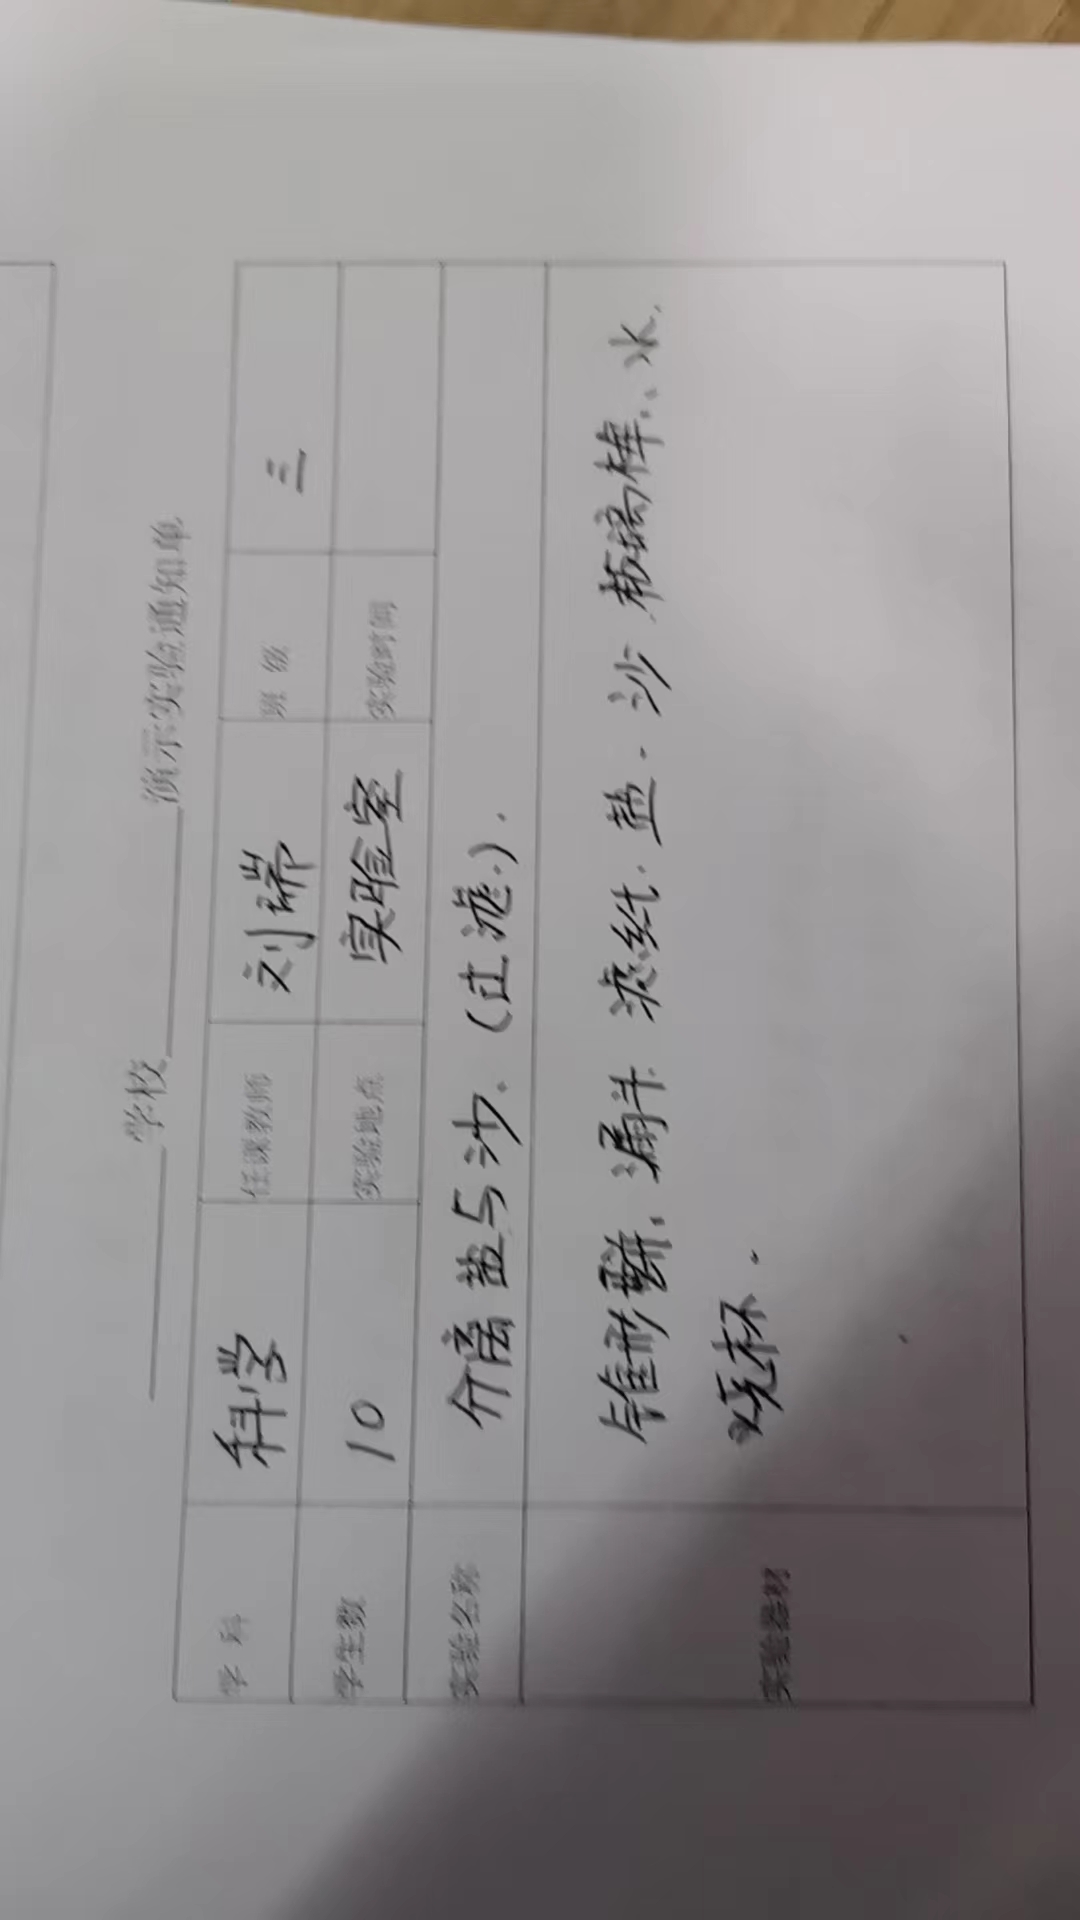 学校 演示实验通知单
学 科 科学 任课教师 刘瑞 班 级 三
学生数 10 实验地点 实验室 实验时间
实验名称 分离盐与沙.(过滤.).
实验器材 锥形瓶、漏斗 滤纸.盐.沙 玻璃棒、水.
烧杯.